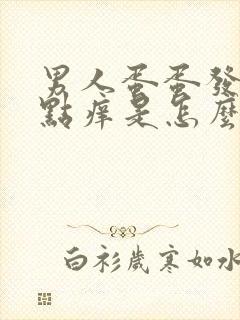 男人蛋蛋發
點痒是怎麼
白衫歲寒如水